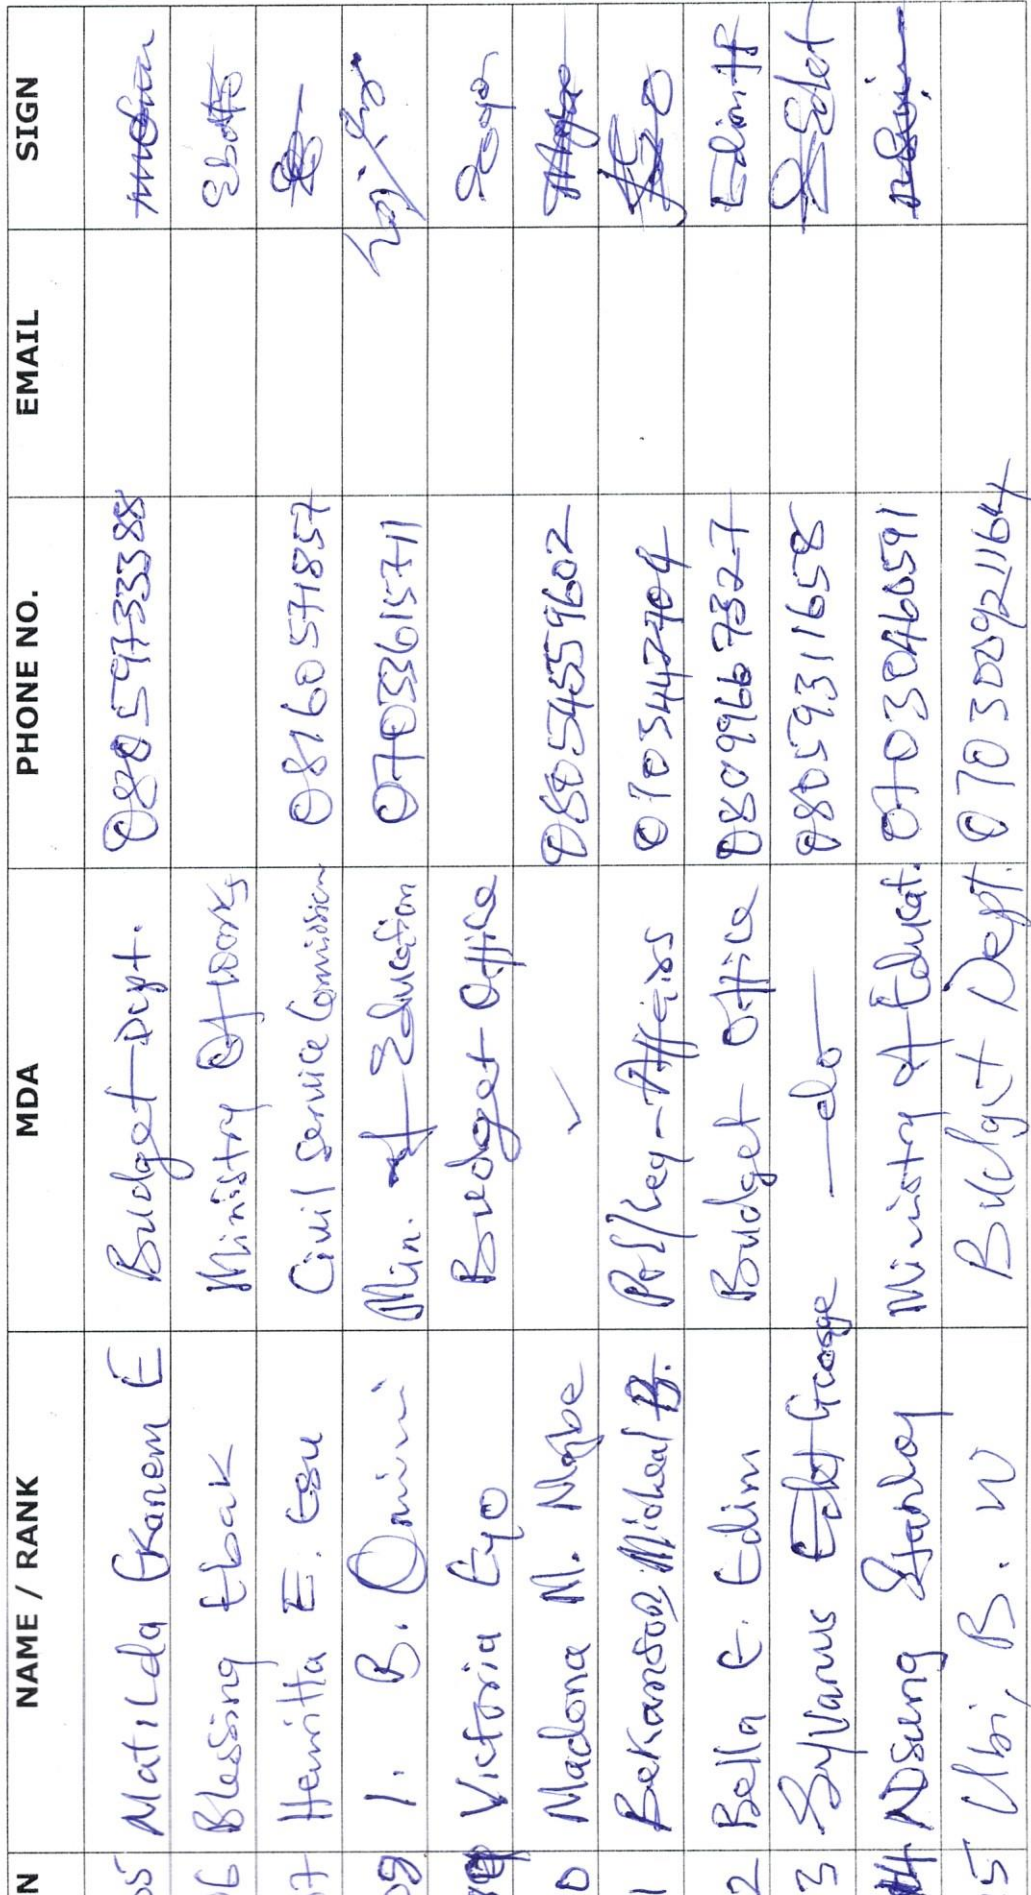 N NAME / RANK MDA PHONE NO. EMAIL SIGN
05 Matilda Ekanem E Budget Dept. 08059733388
06 Blessing Ebak Ministry Of Works
07 Henritta E. Esu Civil Service Commission 08160571857
08 I. B. Omini Min. of Education 07033615711
Victoria Eyo Budget Office
0 Madona M. Ngbe ✓ 08054559602
1 Michael B. Affairs
2 Bella E. Edim Budget Office 08099667327 Edim
3 Sylvanus Edet George —do— 08059311658 Edet
14 Nsung Stanley Ministry of Educat. 07030460591
5 Ubi, B. W Budget Dept. 070300921164